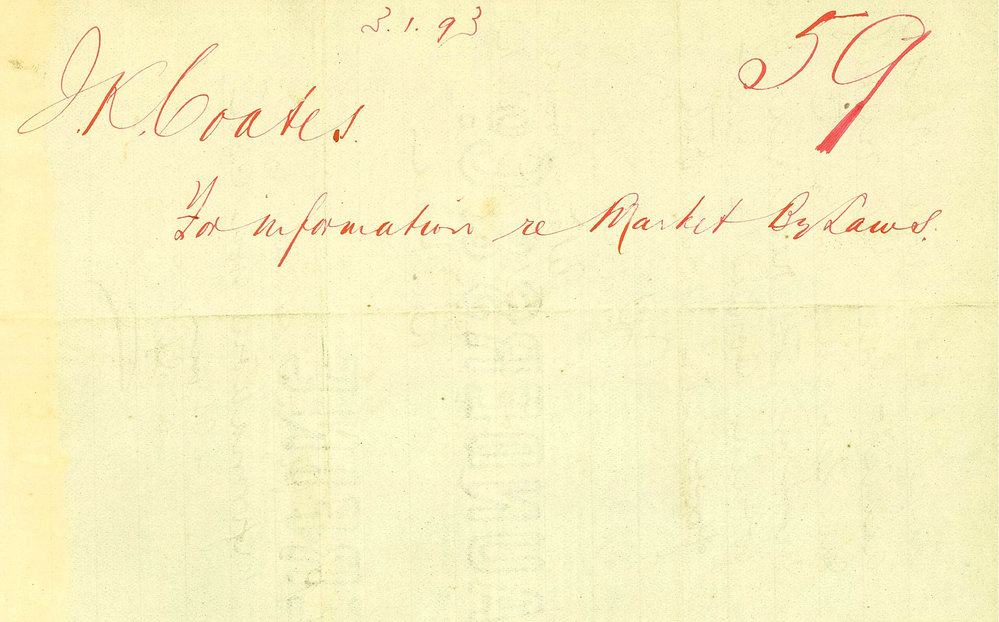 3.1.93
59
J.K. Coates.
For information re Market By Laws.